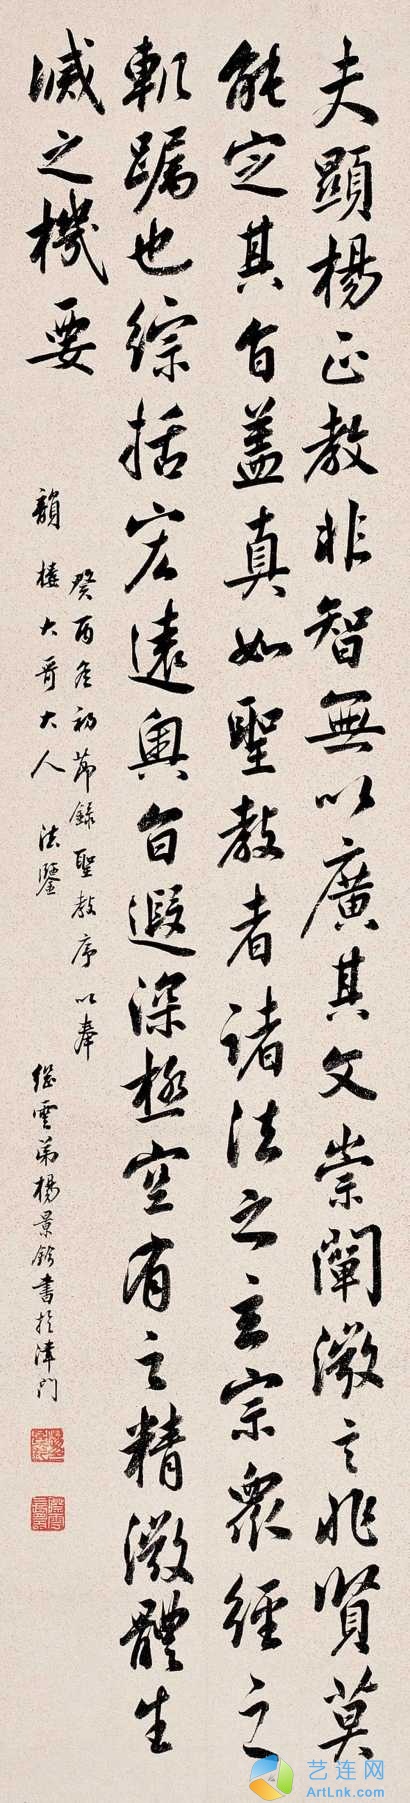 夫顯楊正教非智無以廣其文崇闡微言非賢莫
能定其旨蓋真如聖教者諸法之玄宗衆經之
軌躅也綜括宏遠奧旨遐深極空有之精微體生
滅之機要
癸酉冬初節錄聖教序以奉
韻大哥大人法鑒
雲弟楊景書於津門
艺连网
ArtLnk.com